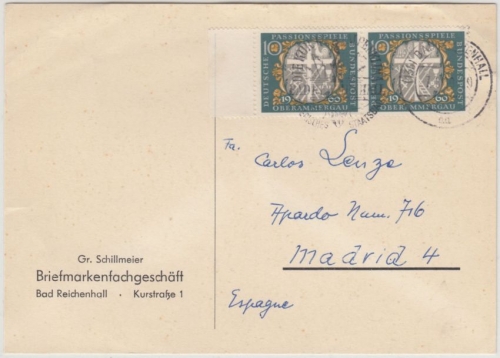 10 PASSIONSSPIELE
DEUTSCHE BUNDESPOST
1960
OBERAMMERGAU
10 PASSIONSSPIELE
DEUTSCHE BUNDESPOST
1960
OBERAMMERGAU
Fa.
Carlos
Apardo Num. 716
Madrid 4
Espagne
Gr. Schillmeier
Briefmarkenfachgeschäft
Bad Reichenhall · Kurstraße 1